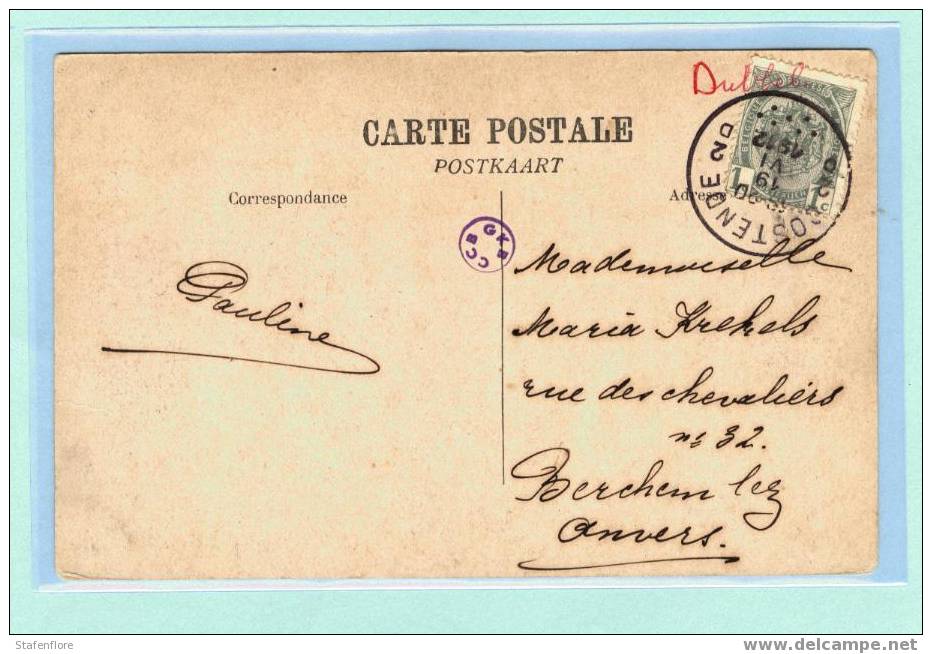 Dubbel
CARTE POSTALE
POSTKAART
Correspondance
Adresse
OSTENDE 2D
19
VI
1912
1
GKB CCB
Mademoiselle
Maria Krekels
rue des chevaliers
nº 32.
Berchem lez
Anvers.
Pauline
Stafenflore
www.delcampe.net